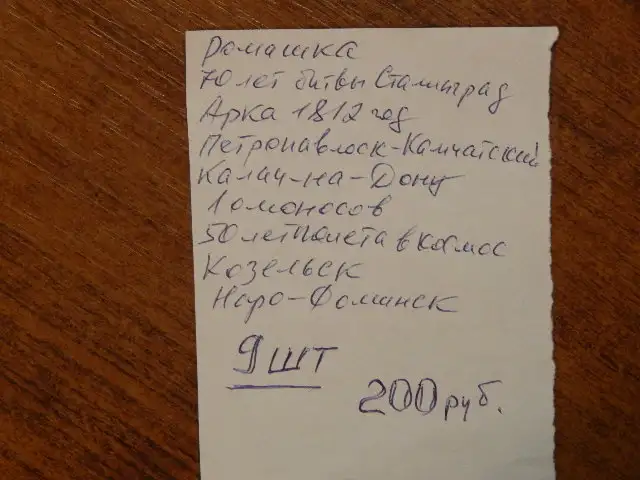 Ромашка
70 лет битвы Сталинград
Арка 1812 год
Петропавлоск-Камчатский
Калач-на-Дону
Ломоносов
50 лет полета в космос
Козельск
Наро-Фоминск
9 шт
200 руб.